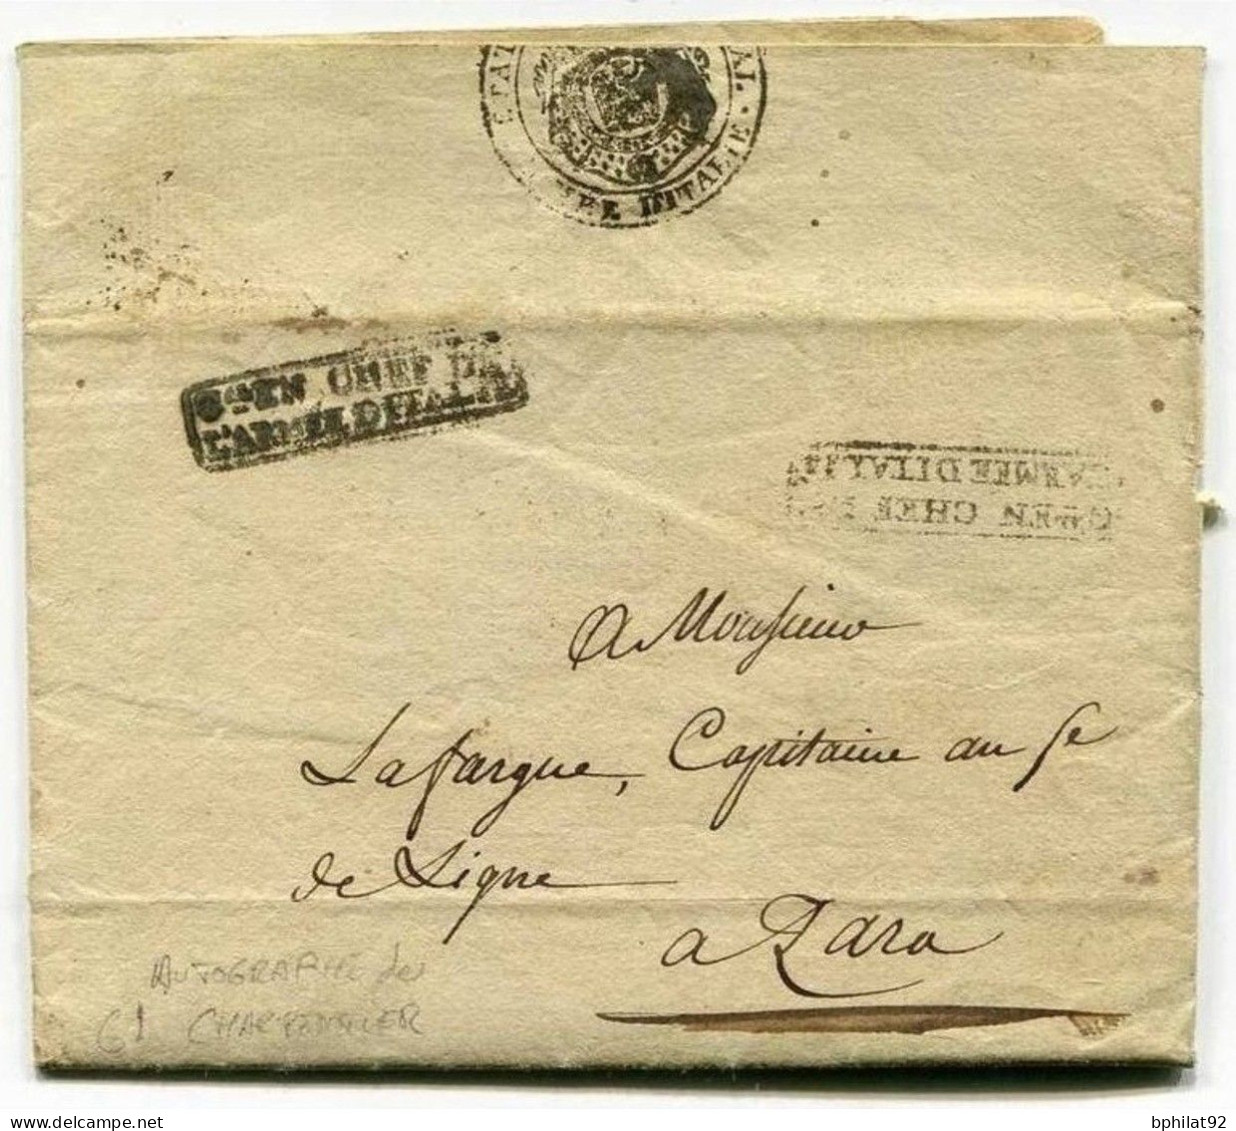 ETAT
ARMEE D'ITALIE.
GAL EN CHEF DE
L'ARMÉE D'ITALIE
GAL EN CHEF DE
L'ARMEE D'ITALIE
A Monsieur
Lafargue, Capitaine au 5e
de Ligne
a Zara
AUTOGRAPHE de
Gl CHARPENTIER
bphilat92